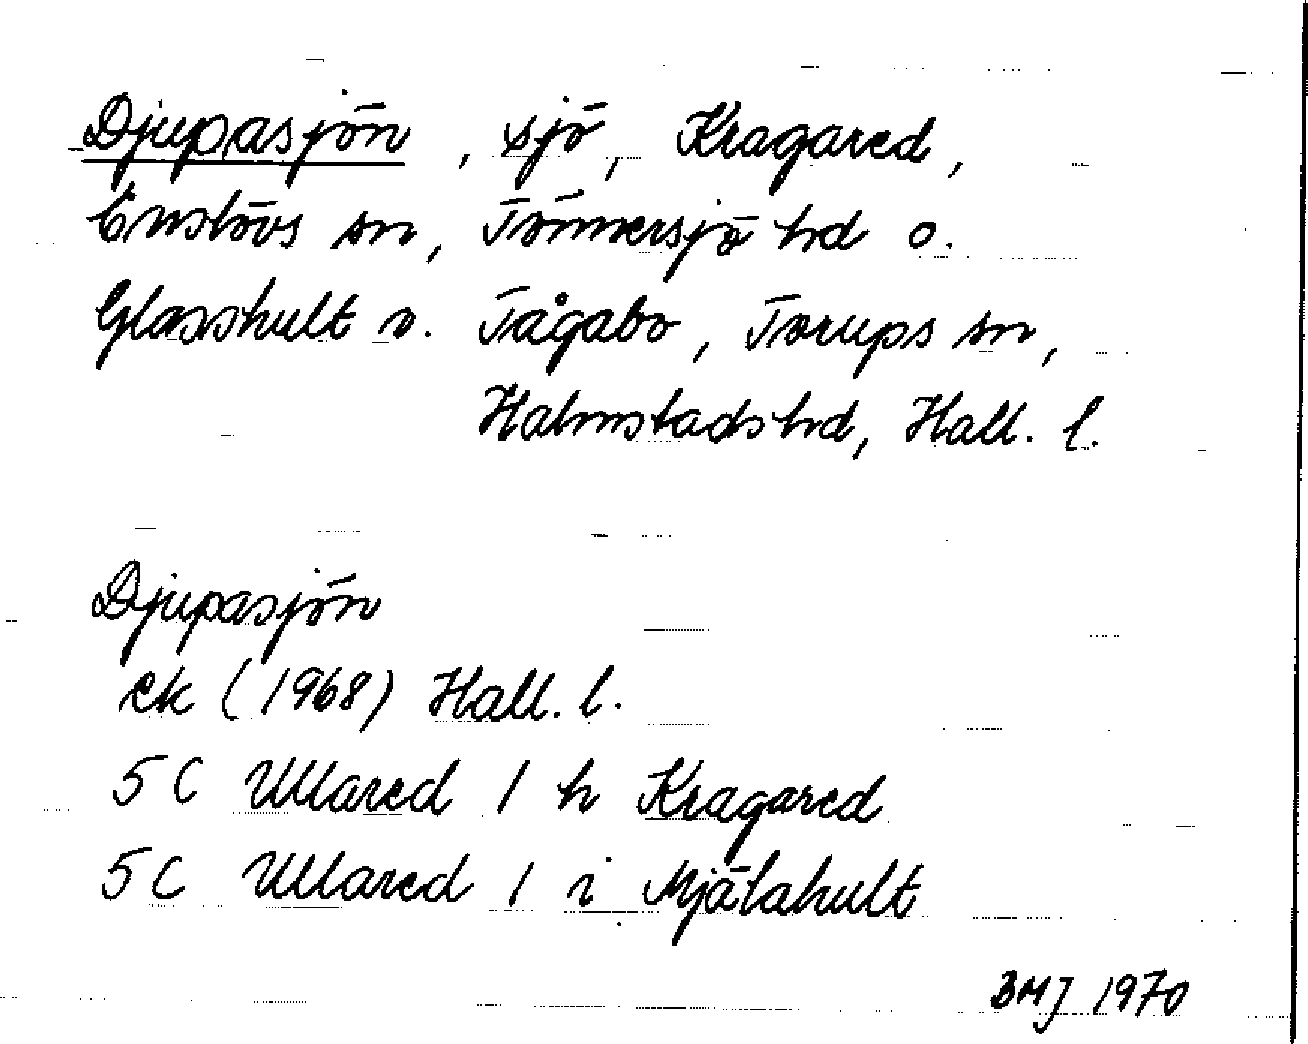 Djupasjön, sjö, Kragared,
Enslövs sn, Tönnersjö hd o.
Glasshult o. Tågabo, Torups sn,
Halmstads hd, Hall. l.
Djupasjön
ek (1968) Hall. l.
5 C Ullared 1 h Kragared
5 C Ullared 1 i Mjälahult
BMJ 1970